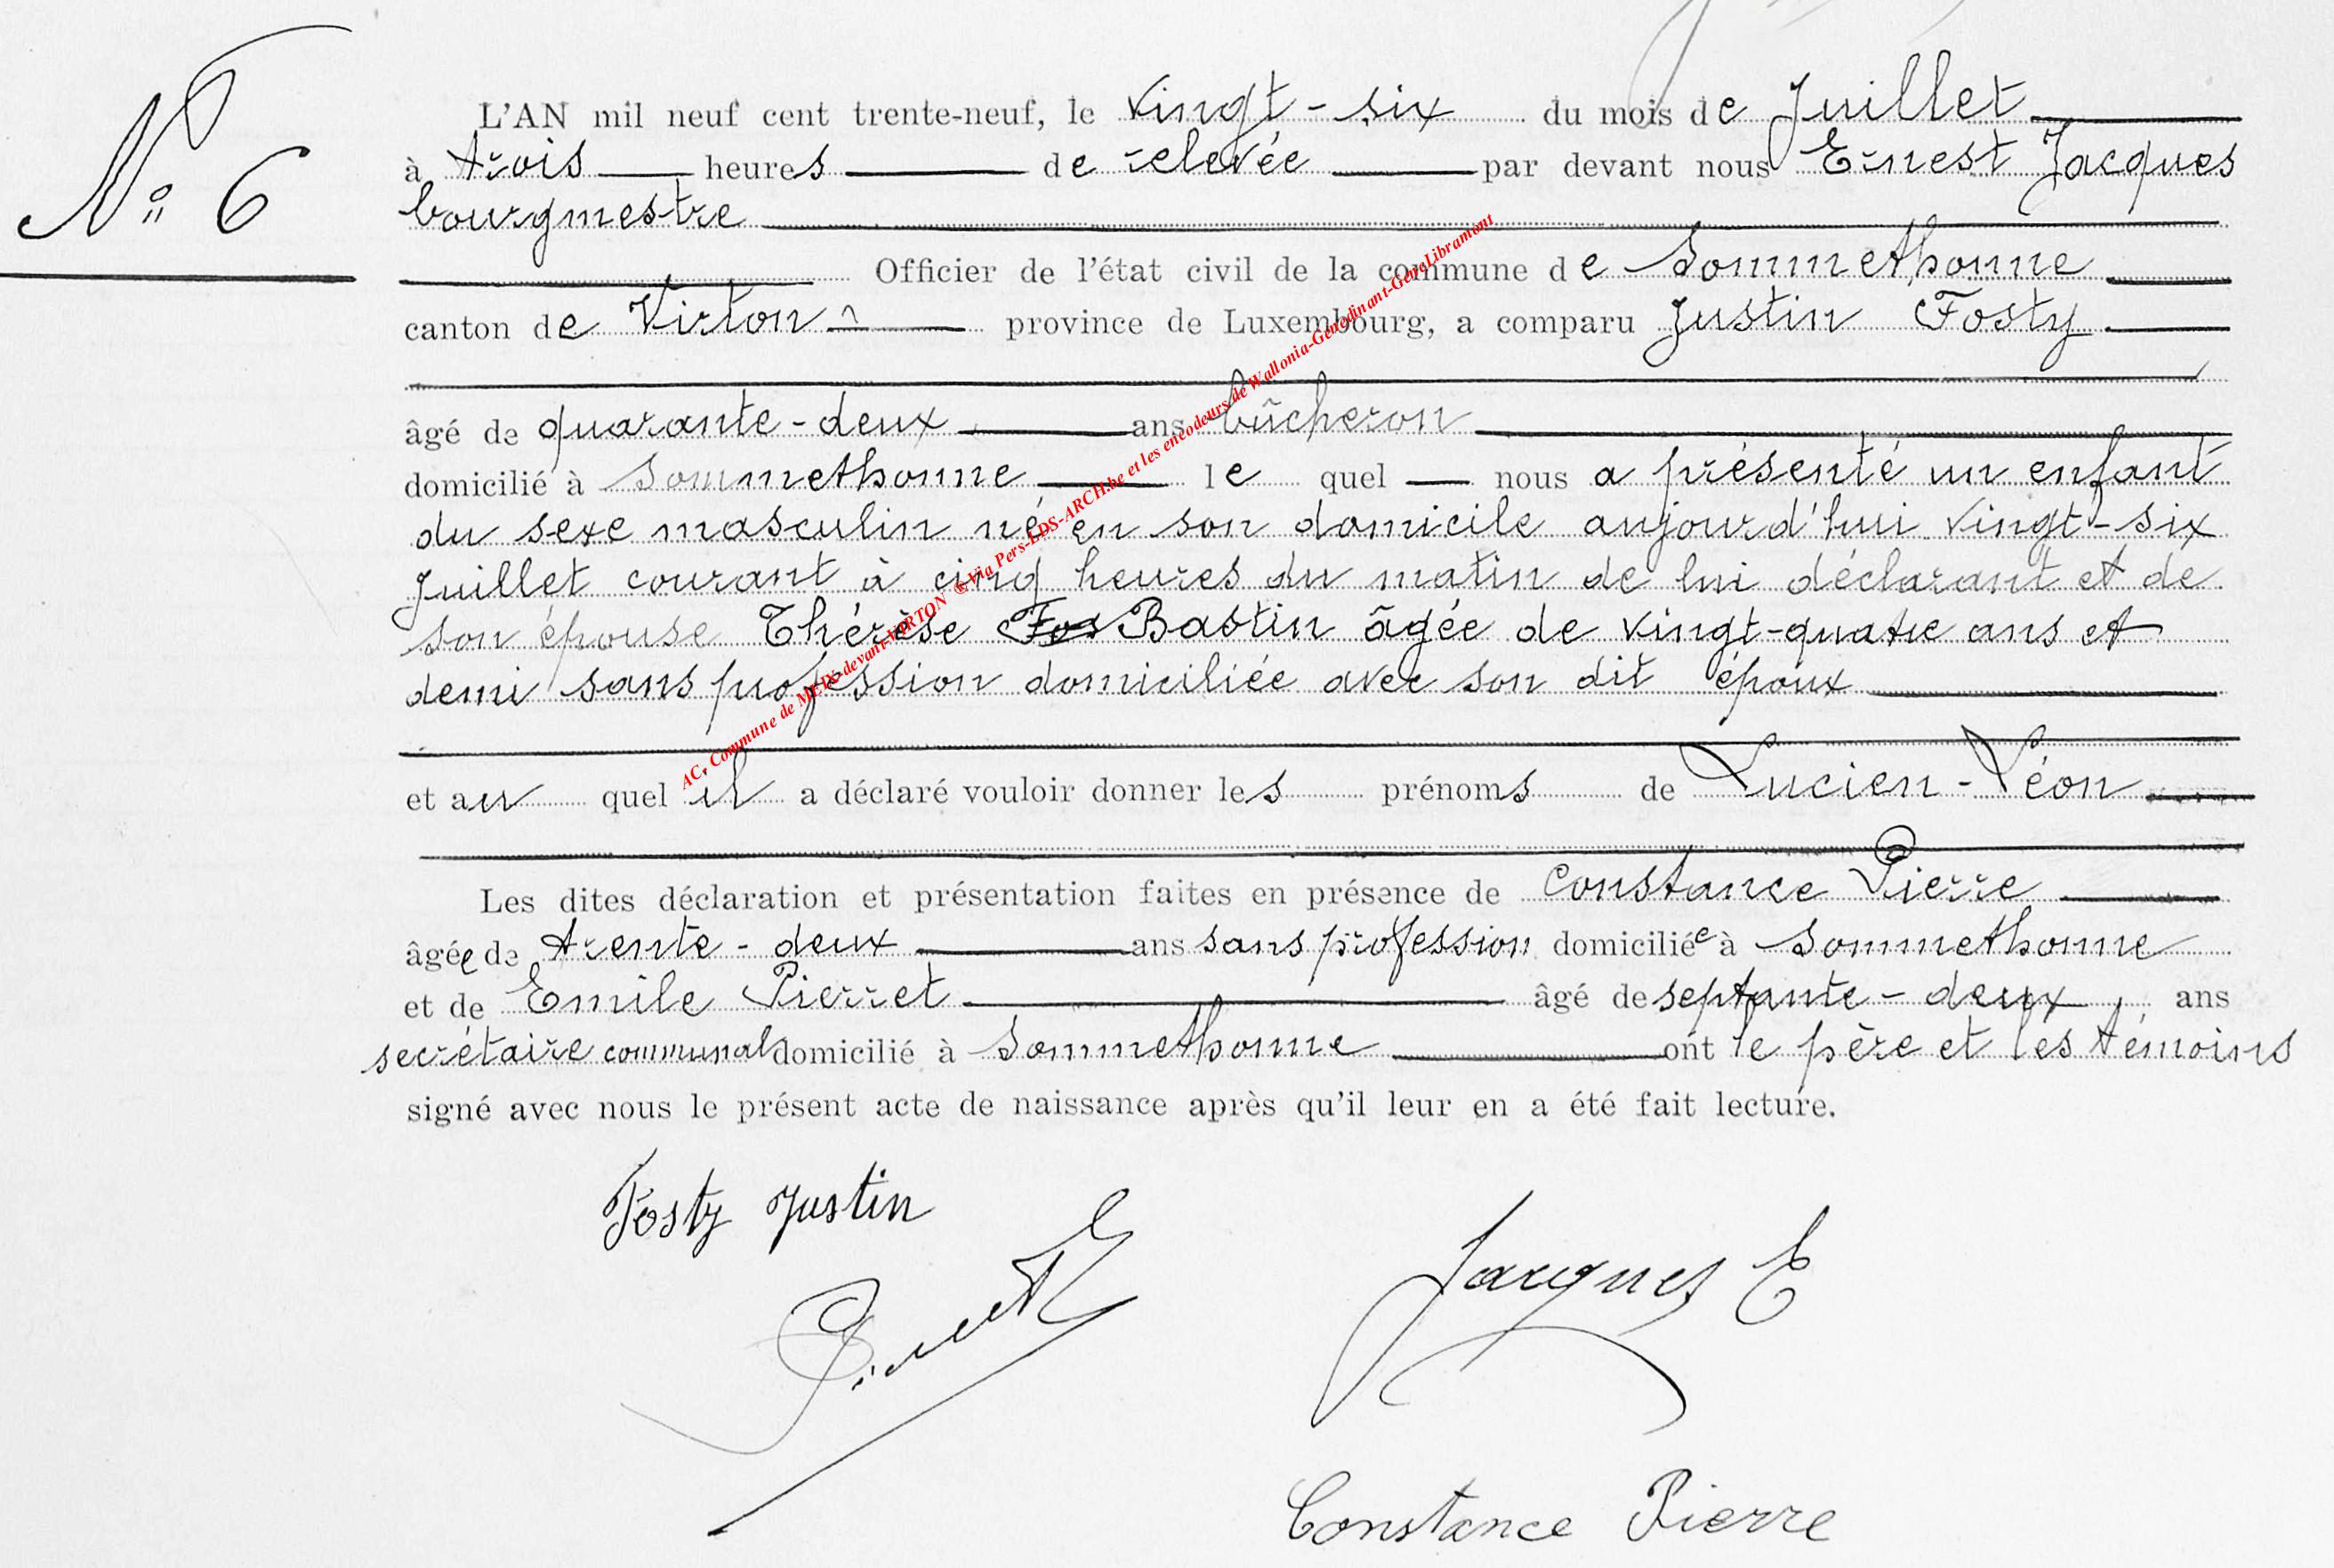 N° 6
L'AN mil neuf cent trente-neuf, le vingt-six du mois de Juillet
à trois heures de relevée par devant nous Ernest Jacques
bourgmestre
Officier de l'état civil de la commune de Sommethonne
canton de Virton province de Luxembourg, a comparu Justin Fosty
âgé de quarante-deux ans bûcheron
domicilié à Sommethonne le quel nous a présenté un enfant
du sexe masculin né en son domicile aujourd'hui vingt-six
Juillet courant à cinq heures du matin de lui déclarant et de
son épouse Thérèse Fos Bastin âgée de vingt-quatre ans et
demi sans profession domiciliée avec son dit époux
et au quel il a déclaré vouloir donner les prénoms de Lucien-Léon
Les dites déclaration et présentation faites en présence de Constance Pierre
âgée de trente-deux ans sans profession domiciliée à Sommethonne
et de Emile Pierret âgé de septante-deux ans
secrétaire communal domicilié à Sommethonne ont le père et les témoins
signé avec nous le présent acte de naissance après qu'il leur en a été fait lecture.
Fosty Justin
Pierret E
Jacques E
Constance Pierre
AC, Commune de MEIX-devant-VIRTON ® Via Pers-LDS-ARCH.be et les encodeurs de Wallonia-Genodinant-GeneLibramont